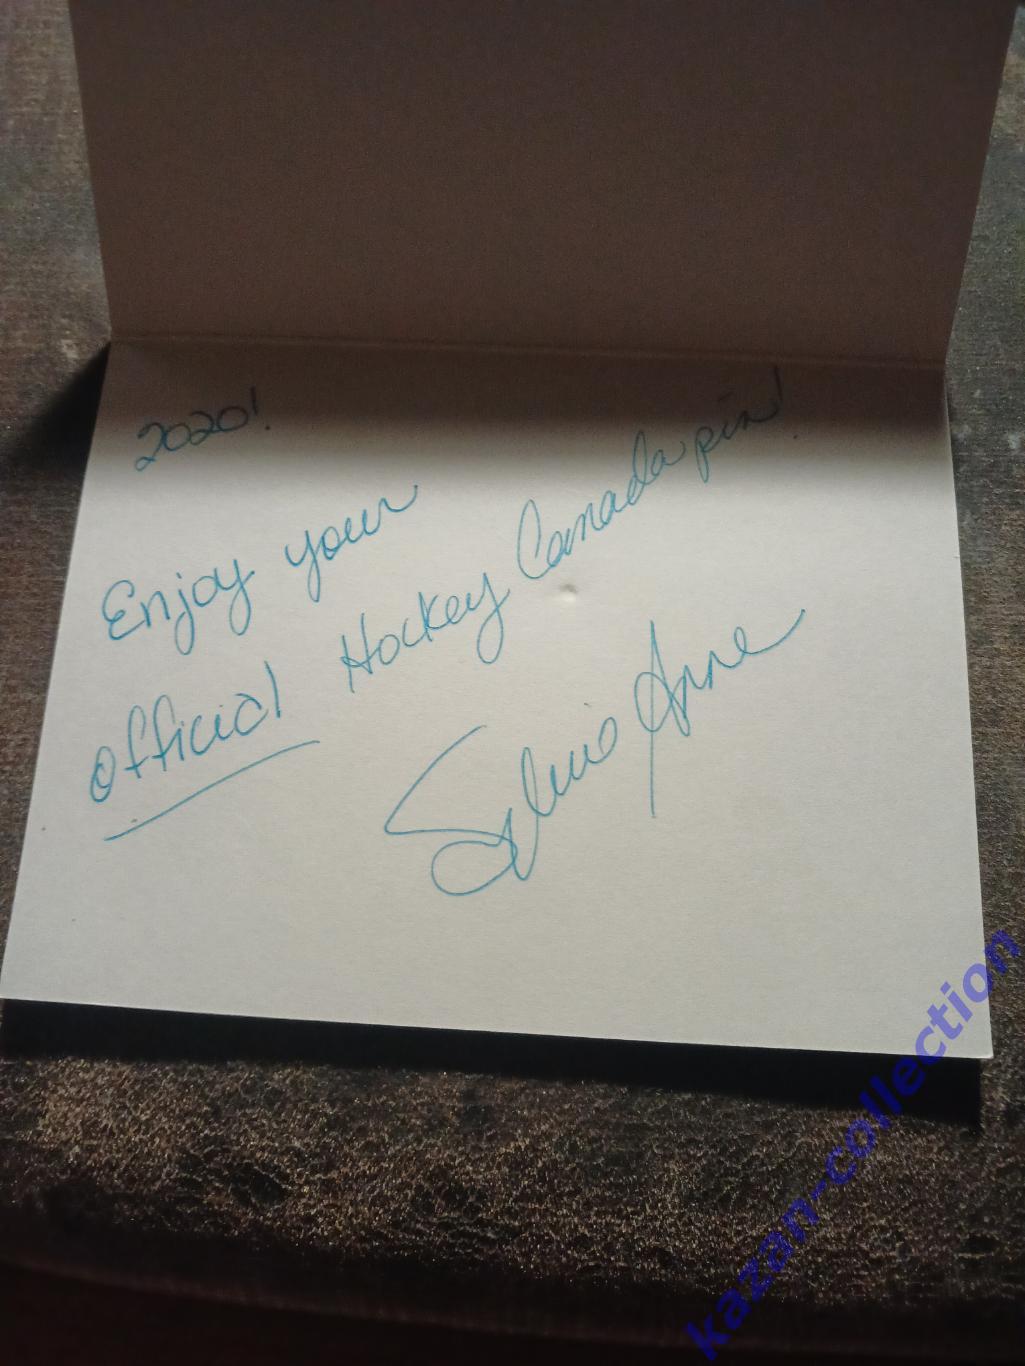 2020!
Enjoy your
official Hockey Canada pin!
Sylvie Anne
kazan-collection